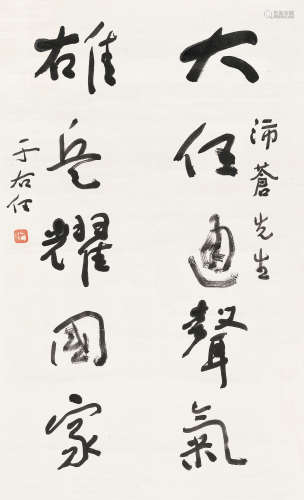 大任通聲氣
沛蒼先生
雄兵耀國家
于右任